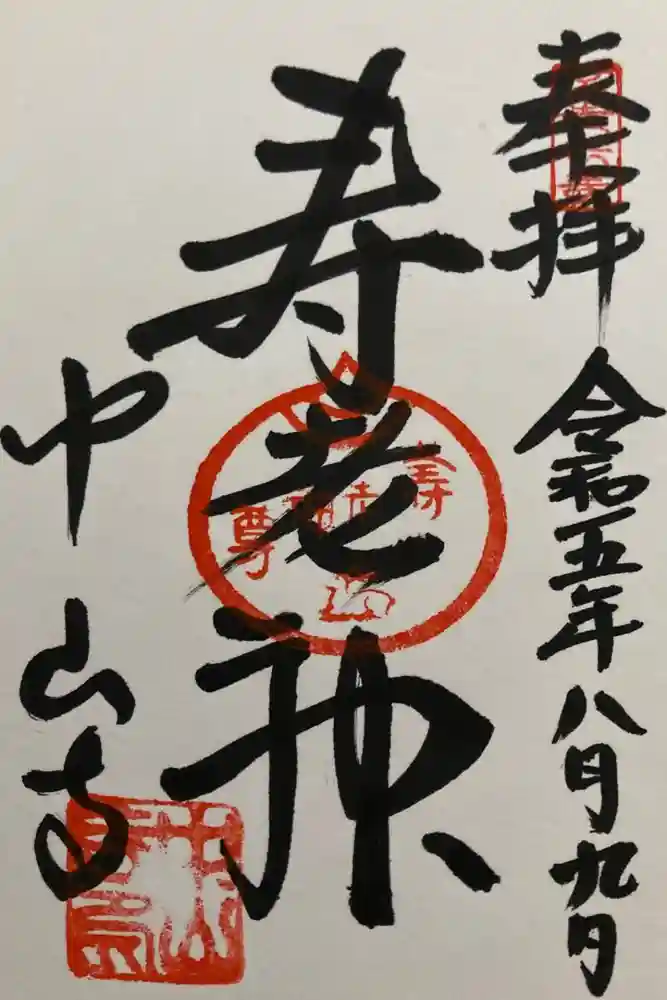 奉拝
令和五年八月九日
寿老神
中山寺
壽老神
尊